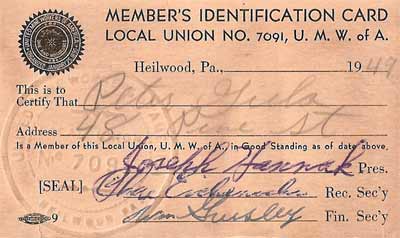 MEMBER'S IDENTIFICATION CARD
LOCAL UNION NO. 7091, U. M. W. of A.
Heilwood, Pa., 1949
This is to
Certify That Pete
Address 48 st
Is a Member of this Local Union, U. M. W. of A., in Good Standing as of date above.
Joseph Hannak Pres.
[SEAL] Rec. Sec'y
9 Fin. Sec'y